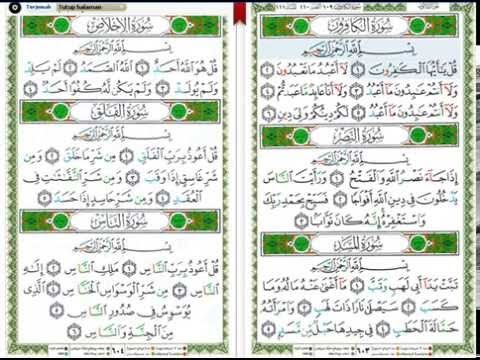 Terjemah Tutup halaman
سُورَةُ الكَافِرُونَ
بِسْمِ ٱللَّهِ ٱلرَّحْمَٰنِ ٱلرَّحِيمِ
قُلْ يَٰٓأَيُّهَا ٱلْكَٰفِرُونَ ١ لَآ أَعْبُدُ مَا تَعْبُدُونَ ٢
وَلَآ أَنتُمْ عَٰبِدُونَ مَآ أَعْبُدُ ٣ وَلَآ أَنَا۠ عَابِدٌ مَّا عَبَدتُّمْ ٤
وَلَآ أَنتُمْ عَٰبِدُونَ مَآ أَعْبُدُ ٥ لَكُمْ دِينُكُمْ وَلِىَ دِينِ ٦
سُورَةُ النَّصْرِ
بِسْمِ ٱللَّهِ ٱلرَّحْمَٰنِ ٱلرَّحِيمِ
إِذَا جَآءَ نَصْرُ ٱللَّهِ وَٱلْفَتْحُ ١ وَرَأَيْتَ ٱلنَّاسَ
يَدْخُلُونَ فِى دِينِ ٱللَّهِ أَفْوَاجًا ٢ فَسَبِّحْ بِحَمْدِ رَبِّكَ
وَٱسْتَغْفِرْهُ إِنَّهُۥ كَانَ تَوَّابًۢا ٣
سُورَةُ المَسَدِ
بِسْمِ ٱللَّهِ ٱلرَّحْمَٰنِ ٱلرَّحِيمِ
تَبَّتْ يَدَآ أَبِى لَهَبٍ وَتَبَّ ١ مَآ أَغْنَىٰ عَنْهُ مَالُهُۥ وَمَا
كَسَبَ ٢ سَيَصْلَىٰ نَارًا ذَاتَ لَهَبٍ ٣ وَٱمْرَأَتُهُۥ
حَمَّالَةَ ٱلْحَطَبِ ٤ فِى جِيدِهَا حَبْلٌ مِّن مَّسَدٍۭ ٥
٦٠٣
سُورَةُ الإِخْلَاصِ
بِسْمِ ٱللَّهِ ٱلرَّحْمَٰنِ ٱلرَّحِيمِ
قُلْ هُوَ ٱللَّهُ أَحَدٌ ١ ٱللَّهُ ٱلصَّمَدُ ٢ لَمْ يَلِدْ
وَلَمْ يُولَدْ ٣ وَلَمْ يَكُن لَّهُۥ كُفُوًا أَحَدٌۢ ٤
سُورَةُ الفَلَقِ
بِسْمِ ٱللَّهِ ٱلرَّحْمَٰنِ ٱلرَّحِيمِ
قُلْ أَعُوذُ بِرَبِّ ٱلْفَلَقِ ١ مِن شَرِّ مَا خَلَقَ ٢ وَمِن
شَرِّ غَاسِقٍ إِذَا وَقَبَ ٣ وَمِن شَرِّ ٱلنَّفَّٰثَٰتِ فِى
ٱلْعُقَدِ ٤ وَمِن شَرِّ حَاسِدٍ إِذَا حَسَدَ ٥
سُورَةُ النَّاسِ
بِسْمِ ٱللَّهِ ٱلرَّحْمَٰنِ ٱلرَّحِيمِ
قُلْ أَعُوذُ بِرَبِّ ٱلنَّاسِ ١ مَلِكِ ٱلنَّاسِ ٢ إِلَٰهِ
ٱلنَّاسِ ٣ مِن شَرِّ ٱلْوَسْوَاسِ ٱلْخَنَّاسِ ٤ ٱلَّذِى
يُوَسْوِسُ فِى صُدُورِ ٱلنَّاسِ ٥
مِنَ ٱلْجِنَّةِ وَٱلنَّاسِ ٦
٦٠٤